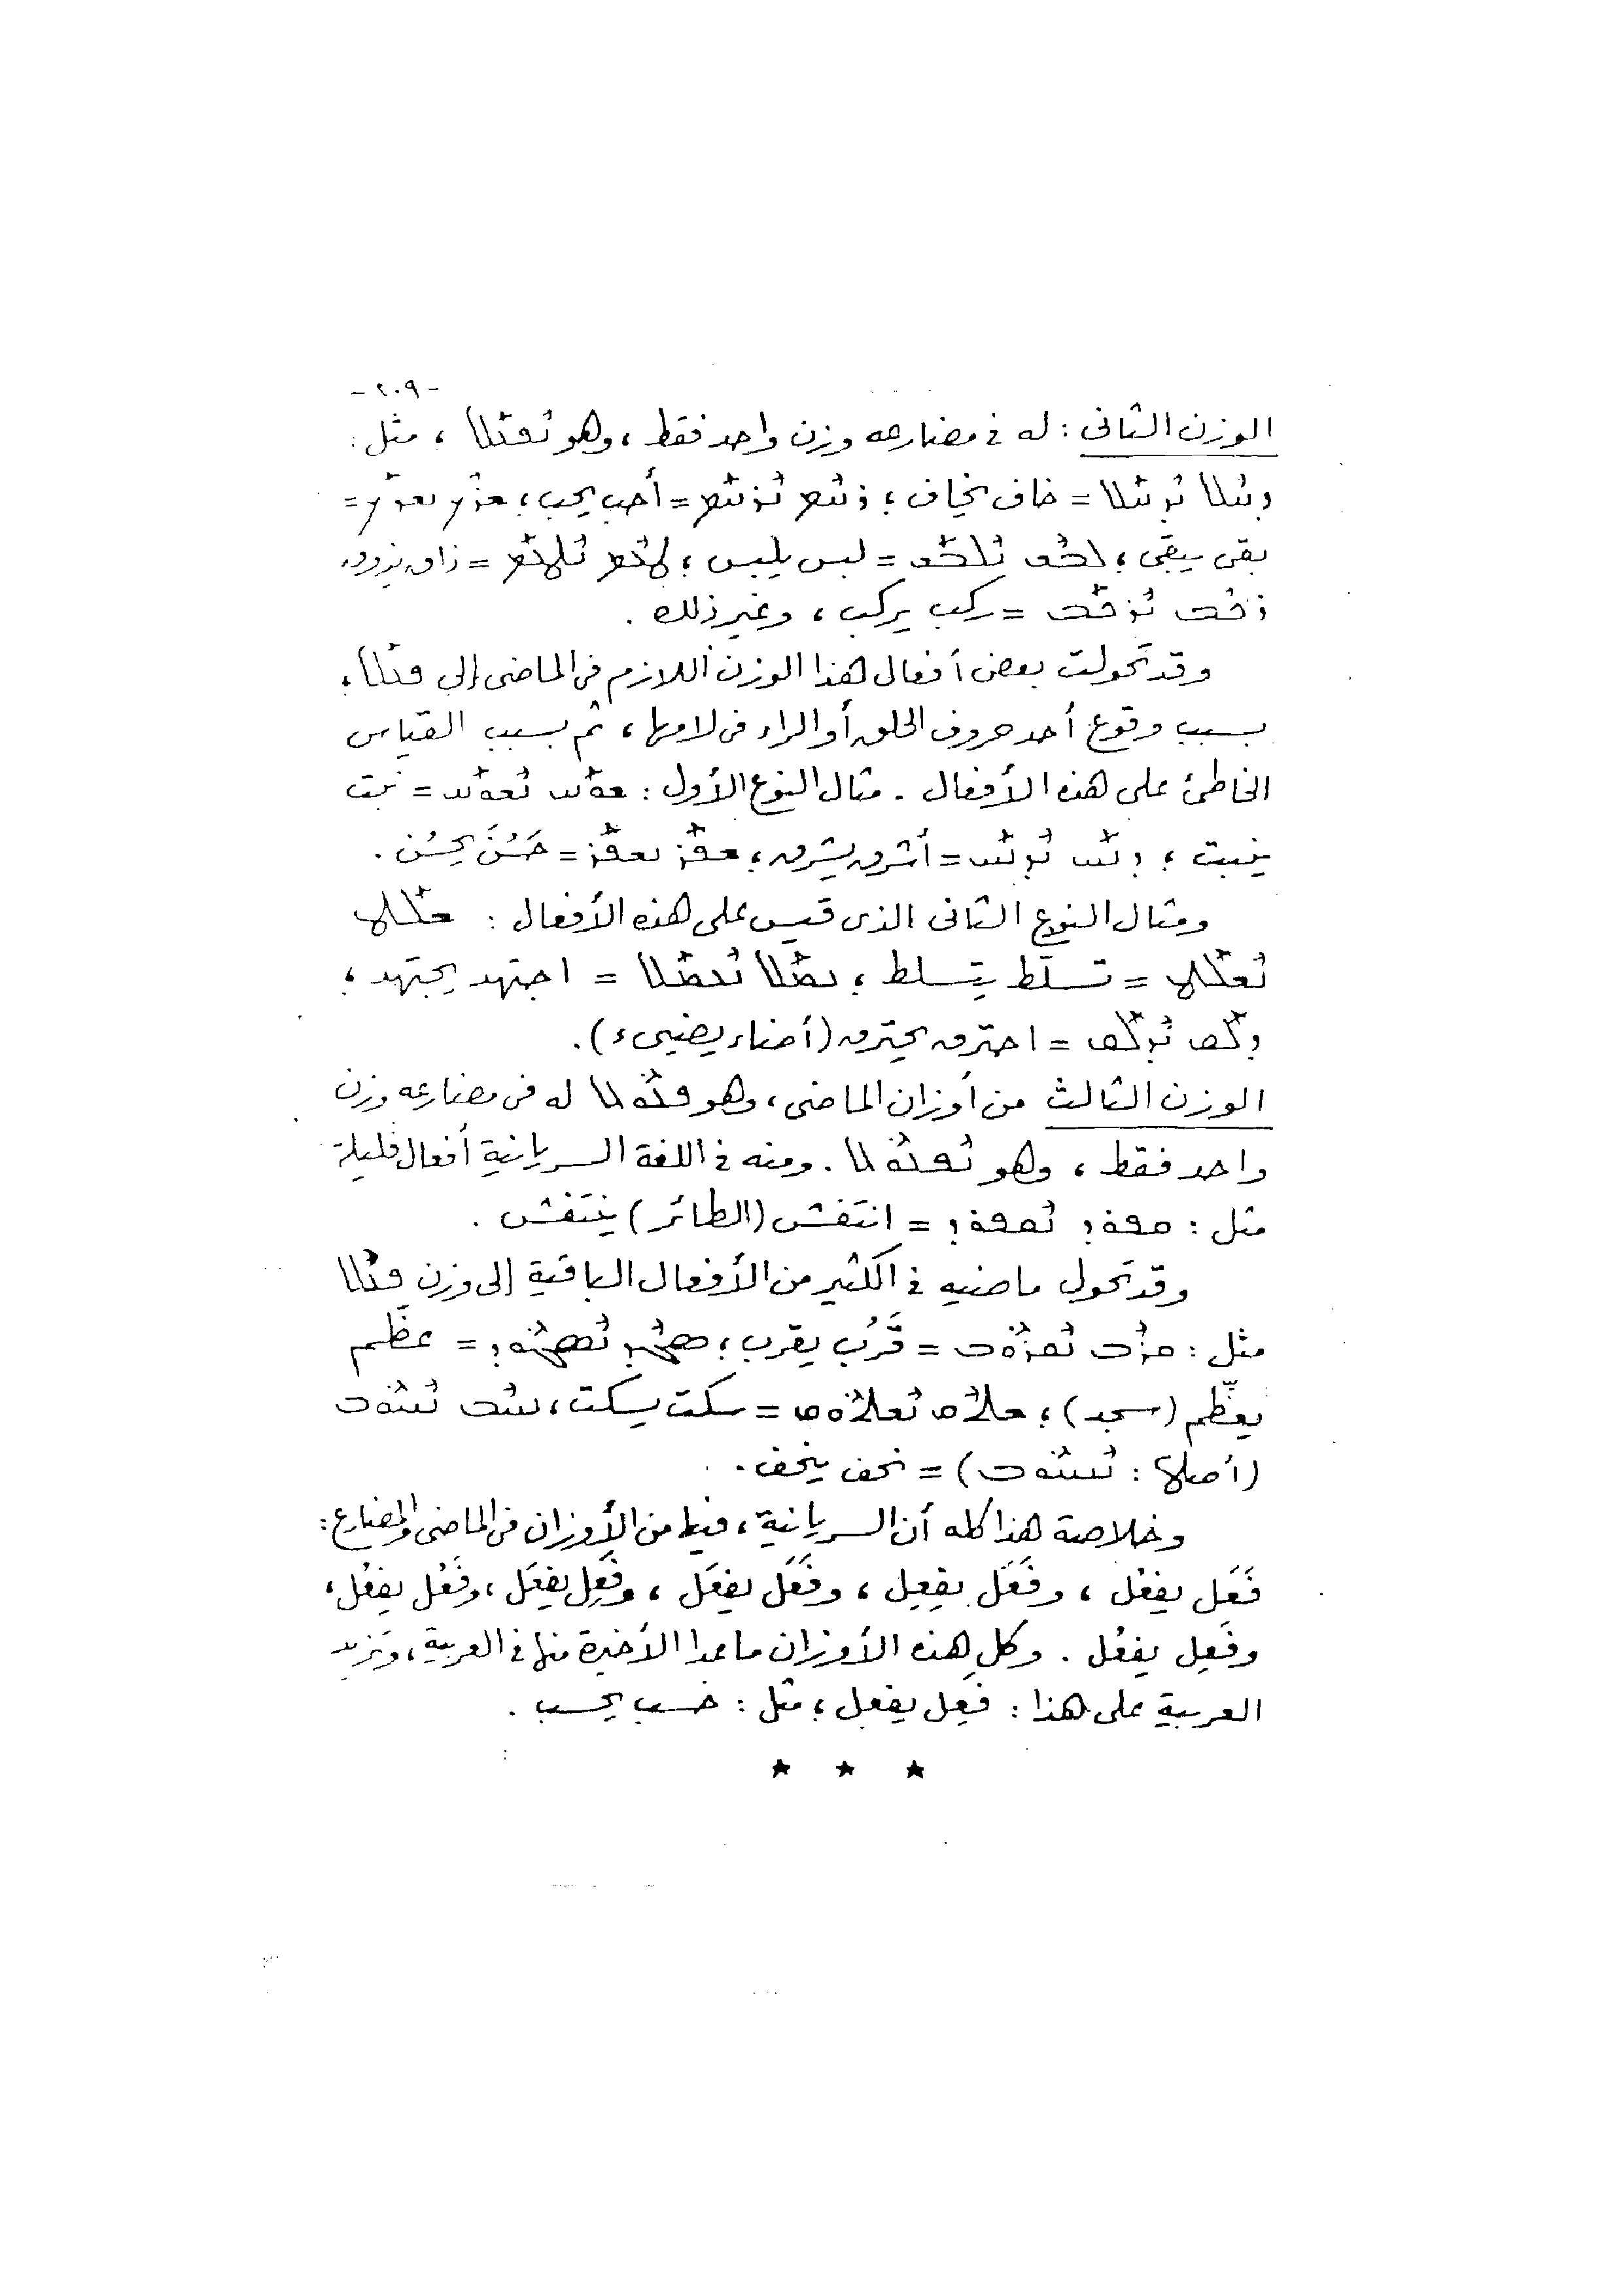 - ٢٠٩ -
الوزن الثانى : له فى مضارعه وزن واحد فقط ، وهو ܢܶܦܥܰܠ ، مثل :
ܕܚܶܠ ܢܶܕܚܰܠ = خاف يخاف ؛ ܪܚܶܡ ܢܶܪܚܰܡ = أحب يحب ؛ =
بقى يبقى ؛ ܠܒܶܫ ܢܶܠܒܰܫ = لبس يلبس ؛ ܛܥܶܡ ܢܶܛܥܰܡ = ذاق يذوق
ܪܟܶܒ ܢܶܪܟܰܒ = ركب يركب ، وغير ذلك .
وقد تحولت بعض أفعال هذا الوزن اللازم فى الماضى إلى ܦܥܰܠ ،
بسبب وقوع أحد حروف الحلق أو الراء فى لامها ، ثم بسبب القياس
الخاطئ على هذه الأفعال . مثال النوع الأول : ܫܘܰܚ ܢܶܫܘܰܚ = نبت
ينبت ؛ ܕܢܰܚ ܢܶܕܢܰܚ = أشرق يشرق ؛ ܫܦܰܪ ܢܫܦܰܪ = حَسُنَ يحسُن .
ومثال النوع الثانى الذى قيس على هذه الأفعال : ܫܠܰܛ
ܢܶܫܠܰܛ = تسلّط يتسلط ؛ ܥܡܰܠ ܢܶܥܡܰܠ = اجتهد يجتهد ؛
ܕܠܰܩ ܢܶܕܠܰܩ = احترق يحترق (أضاء يضىء) .
الوزن الثالث من أوزان الماضى ، وهو ܦܥܘܠ له فى مضارعه وزن
واحد فقط ، وهو ܢܶܦܥܘܠ . ومنه فى اللغة السريانية أفعال قليلة
مثل : ܩܦܘܕ ܢܶܩܦܘܕ = انتَفش (الطائر) ينتَفش .
وقد تحول ماضيه فى الكثير من الأفعال الباقية إلى وزن ܦܥܰܠ
مثل : ܩܪܶܒ ܢܶܩܪܘܒ = قَرُب يقرب ؛ ܣܓܶܕ ܢܶܣܓܘܕ = عظّم
يعظّم (سجد) ؛ ܫܬܶܩ ܢܶܫܬܘܩ = سكت يسكت ، ܚܪܶܒ ܢܶܚܪܘܒ
(أصلها : ) = نحف ينحف .
وخلاصة هذا كله أن السريانية ، فيها من الأوزان فى الماضى والمضارع :
فَعَل يفعُل ، وفَعَل يفعِل ، وفَعَل يفعَل ، وفَعِل يفعَل ، وفَعُل يفعُل ،
وفَعِل يفعُل . وكل هذه الأوزان ماعدا الأخيرة منها فى العربية ، وتزيد
العربية على هذا : فَعِل يفعِل ؛ مثل : حَسِب يحسِب .
* * *